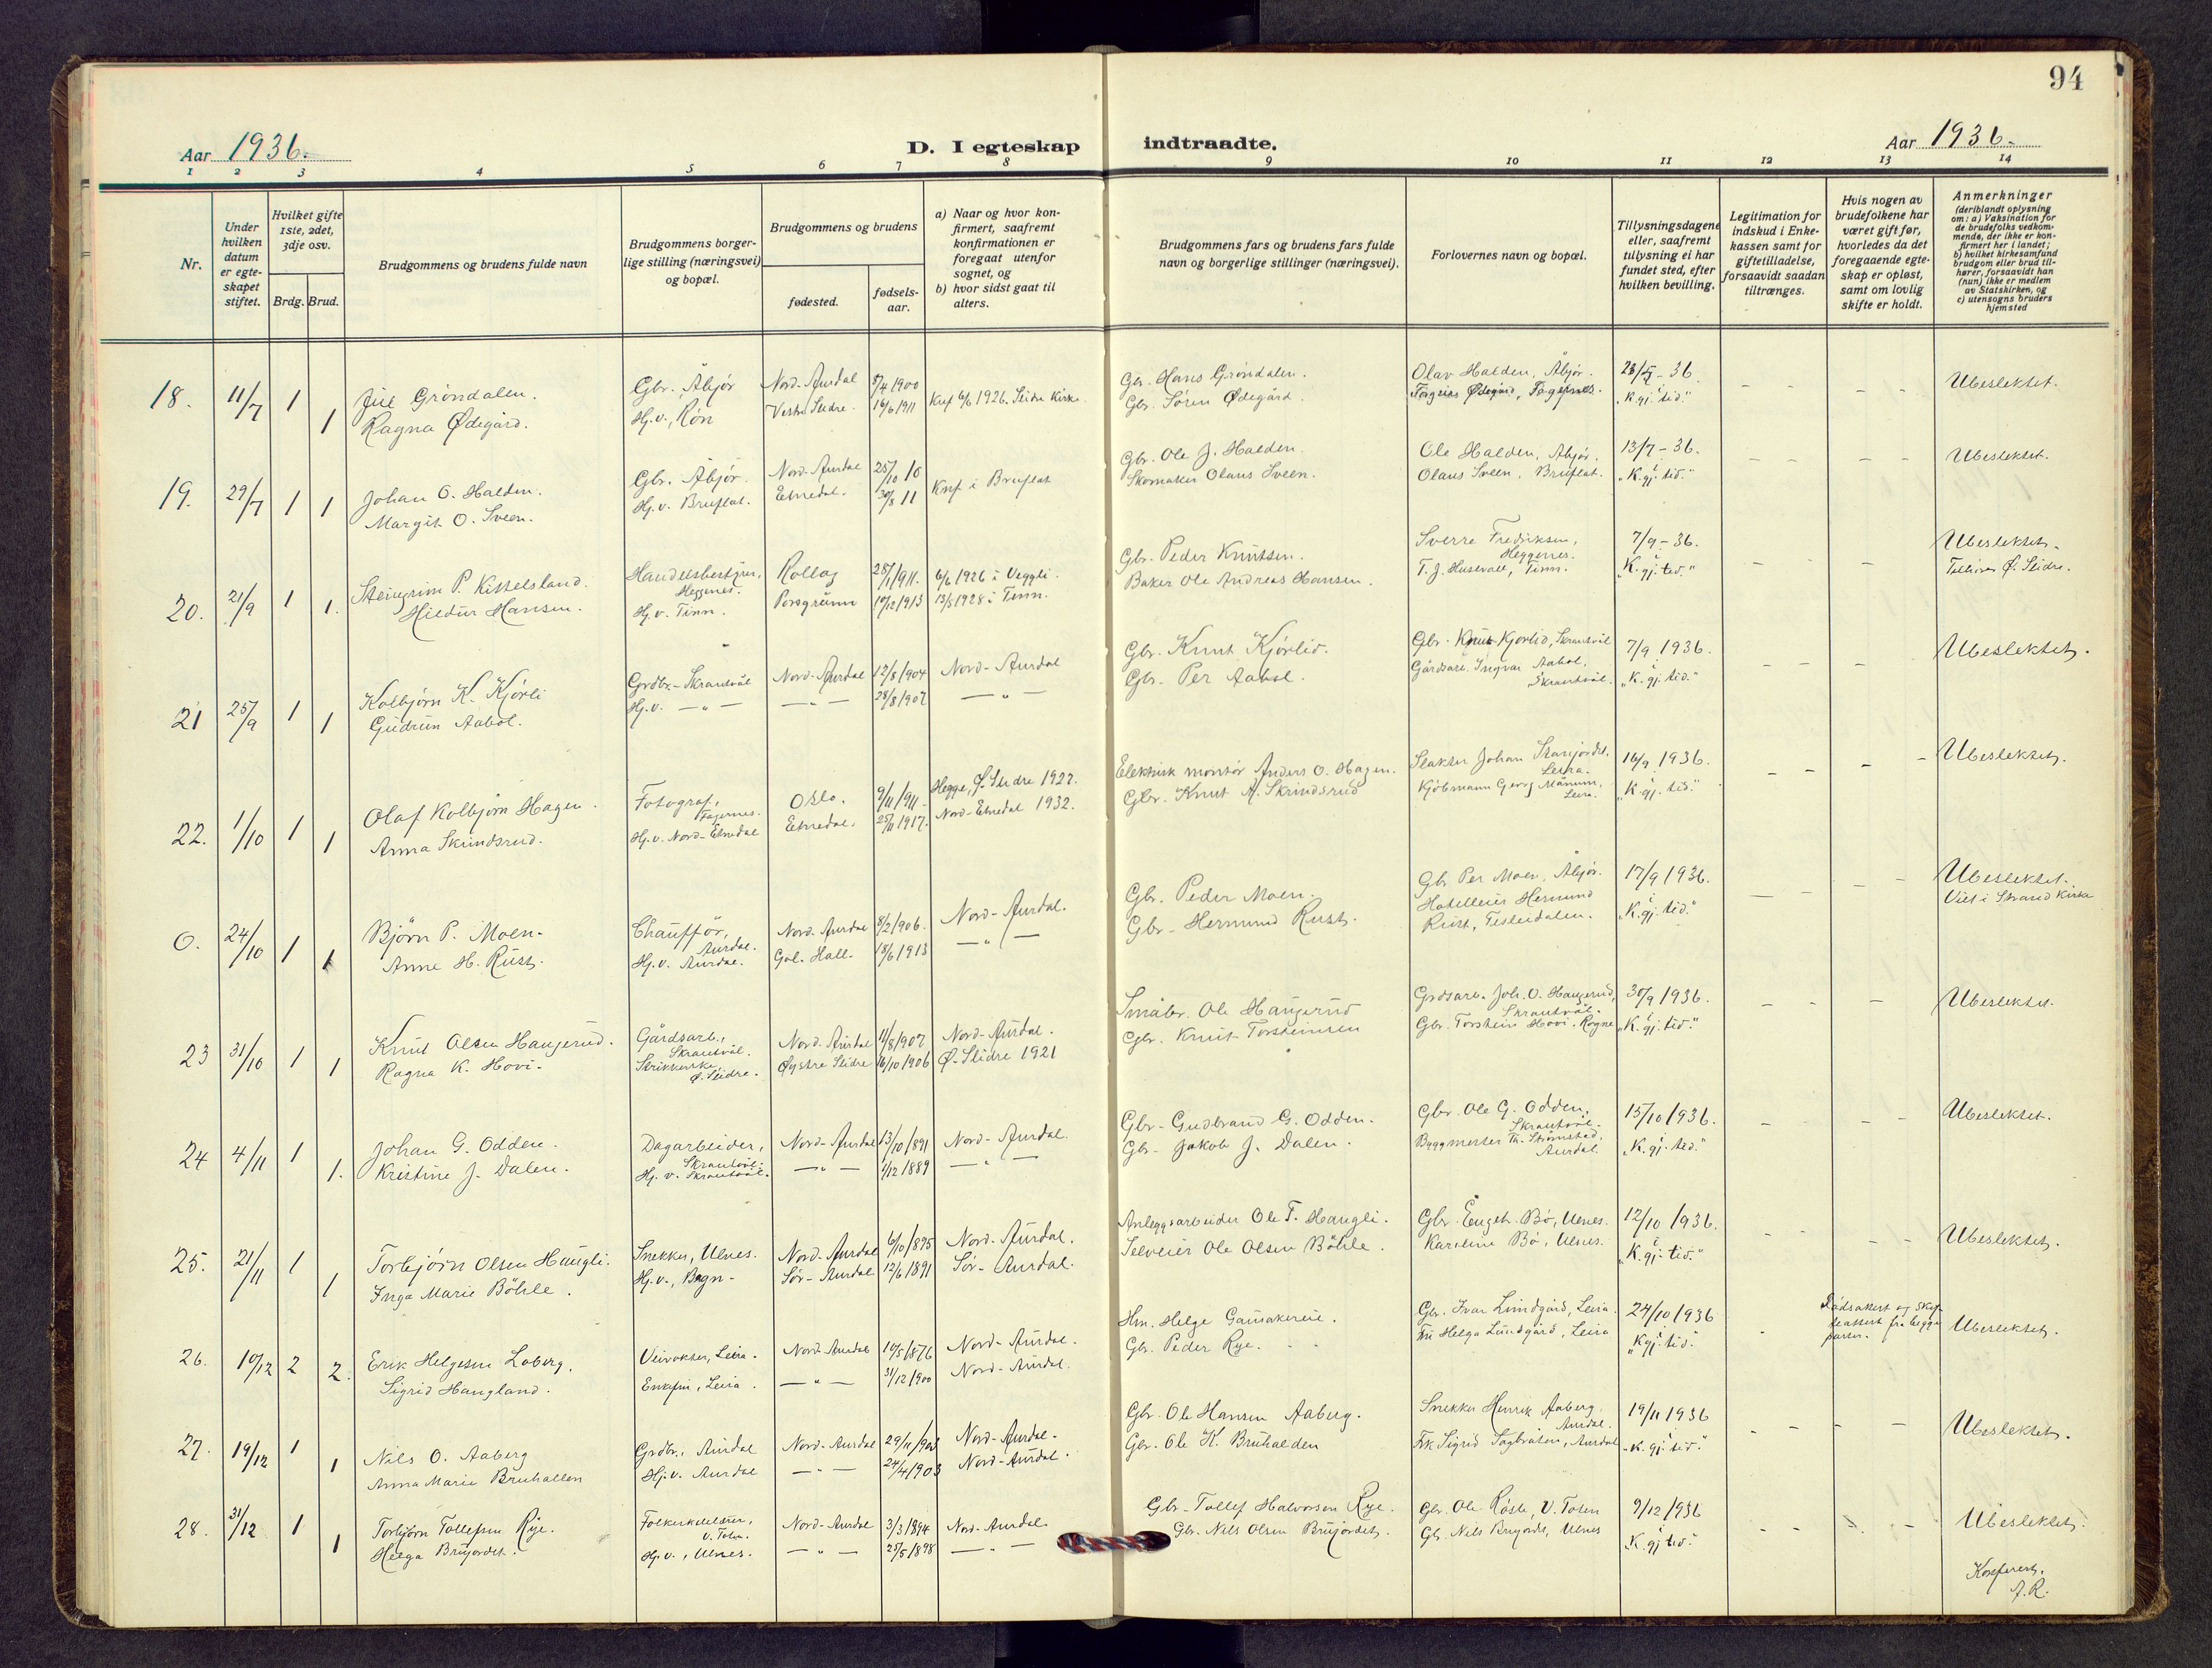 94
Aar 1936.
D. I egteskap indtraadte.
Aar 1936.
1 2 3 4 5 6 7 8 9 10 11 12 13 14
Nr.
Under hvilken datum er egteskapet stiftet.
Hvilket gifte 1ste, 2det, 3dje osv.
Brdg. Brud.
Brudgommens og brudens fulde navn
Brudgommens borgerlige stilling (næringsvei) og bopæl.
Brudgommens og brudens
fødested.
fødselsaar.
a) Naar og hvor konfirmert, saafremt konfirmationen er foregaat utenfor sognet, og
b) hvor sidst gaat til alters.
Brudgommens fars og brudens fars fulde navn og borgerlige stillinger (næringsvei).
Forlovernes navn og bopæl.
Tillysningsdagene eller, saafremt tillysning ei har fundet sted, efter hvilken bevilling.
Legitimation for indskud i Enkekassen samt for giftetilladelse, forsaavidt saadan tiltrænges.
Hvis nogen av brudefolkene har været gift før, hvorledes da det foregaaende egteskap er opløst, samt om lovlig skifte er holdt.
Anmerkninger
(deriblandt oplysning om: a) Vaksination for de brudefolks vedkommende, der ikke er konfirmert her i landet; b) hvilket kirkesamfund brudgom eller brud tilhører, forsaavidt han (hun) ikke er medlem av Statskirken, og c) utensogns bruders hjemsted
18. 11/7 1 Grøndalen. Gbr. Åbjør Nord-Aurdal 1900 Gbr. Hans Grøndalen. Olav Halden, Åbjør. - 36. Ubeslektet.
1 Ragna Ødegård. Hj.v., Røn Vestre Slidre. 16/6 1911 Knf 6/6 1926. Slidre Kirke. Gbr. Søren Ødegård. Ødegård, Fagernes. "K. gj. i tid."
19. 29/7 1 1 Johan O. Halden. Gbr. Åbjør. Nord-Aurdal 25/10 10 Gbr. Ole J. Halden. Ole Halden, Åbjør. 13/7 - 36. Ubeslektet.
Margit O. Sveen. Hj.v. Bruflat. Etnedal. 30/8 11 Knf i Bruflat Skomaker Olaus Sveen. Olaus Sveen, Bruflat. "K. gj. i tid."
20. 21/9 1 1. Steingrim P. Kittelsland. Handelsbestyrer, Heggenes. Rollag 28/1 1911. 6/6 1926 i Veggli. Gbr. Peder Knutsen. Sverre Fredriksen, Heggenes. 7/9 - 36. Ubeslektet.
Hildur Hansen. Hj.v. Tinn. Porsgrunn 10/12 1913 13/5 1928 i Tinn. Baker Ole Andreas Hansen. T. J. Husevall, Tinn. "K. gj. i tid." Tilhører Ø. Slidre.
21 25/9 1 1 Kolbjørn K. Kjørli Grdbr. - Skrautvål Nord-Aurdal 12/8 1904 Nord-Aurdal Gbr. Knut Kjørlid. Gbr. Knut Kjørlid, Skrautvål 7/9 1936. Ubeslektet.
Gudrun Aabol. Hj.v. — " — — " — 28/8 1907 — " — Gbr. Per Aabol. Gårdsarb. Ingvar Aabol, Skrautvål. "K. gj. i tid."
22. 1/10 1 1 Olaf Kolbjørn Hagen. Fotograf, Fagernes. Oslo. 9/11 1911. Hegge, Ø. Slidre 1927. Elektrisk montør Anders O. Hagen. Slakter Johan Skarjordet, Leira. 16/9 1936. Ubeslektet.
Anna Skrindsrud. Hj.v. Nord-Etnedal Etnedal. 25/11 1917. Nord-Etnedal 1932. Gbr. Knut A. Skrindsrud Kjøbmann Georg, Leira. "K. gj. i tid."
0. 24/10 1 1 Bjørn P. Moen. Chauffør, Aurdal. Nord-Aurdal 8/2 1906. Nord-Aurdal. Gbr. Peder Moen. Gbr Per Moen, Åbjør. 17/9 1936. Ubeslektet.
Anne H. Rust. Hj.v. Aurdal. Gol. Hall. 18/6 1913 — " — Gbr. Hermund Rust. Hotelleier Hermund Rust, Tisleidalen. "K. gj. i tid." Viet i Strand Kirke
23 31/10 1 1 Knut Olsen Haugerud. Gårdsarb., Skrautvål. Nord-Aurdal 11/8 1907 Nord-Aurdal. Småbr. Ole Haugerud Grdsarb. Joh. O. Haugerud, Skrautvål. 30/9 1936. Ubeslektet.
Ragna K. Hovi. Strikkerske Ø. Slidre. Øystre Slidre 16/10 1906 Ø. Slidre 1921 Gbr. Knut Torsteinsen Gbr. Torstein Hovi, Rogne "K. gj. i tid."
24 4/11 1 1. Johan G. Odden. Dagarbeider, Skrautvål. Nord-Aurdal 13/10 1891 Nord-Aurdal. Gbr. Gudbrand G. Odden. Gbr. Ole G. Odden, Skrautvål. 15/10 1936. Ubeslektet.
Kristine J. Dalen. Hj.v. Skrautvål. — " — 1/12 1889 — " — Gbr. Jakob J. Dalen. Byggmester Th. Strømstad, Aurdal. "K. gj. i tid."
25. 21/11 1 1 Torbjørn Olsen Haugli. Snekker, Ulnes. Nord-Aurdal 6/10 1895 Nord-Aurdal. Anleggsarbeider Ole T. Haugli. Gbr. Engebr. Bø, Ulnes. 12/10 1936. Ubeslektet.
Inga Marie Bøhle. Hj.v., Bagn. Sør-Aurdal 12/6 1891 Sør-Aurdal. Selveier Ole Olsen Bøhle. Karoline Bø, Ulnes. "K. gj. i tid."
26. 10/12 2 2. Erik Helgesen Loberg. Veivokter, Leira. Nord-Aurdal 10/5 1876 Nord-Aurdal. Hm. Helge Gausakereie. Gbr. Ivar Lundgård, Leira. 24/10 1936 fra begge parter. Ubeslektet.
Sigrid Haugland. Enkefru, Leira. — " — 31/12 1900 Nord-Aurdal. Gbr. Peder Rye. Fru Helga Lundgård, Leira "K gj. i tid."
27. 19/12 1 1 Nils O. Aaberg Grdbr., Aurdal Nord-Aurdal 29/11 Nord-Aurdal. Gbr. Ole Hansen Aaberg. Snekker Henrik Aaberg, Aurdal. 19/11 1936 Ubeslektet.
Anna Marie Bruhallen Hj.v. Aurdal — " — 24/4 1903 Nord-Aurdal. Gbr. Ole K. Bruhalden Frk Sigrid Sagbråten, Aurdal "K. gj. i tid."
28. 31/12 1 1 Torbjørn Tollefsen Rye. V. Toten. Nord-Aurdal 3/3 1894 Nord-Aurdal. Gbr. Tollef Halvorsen Rye. Gbr. Ole Røste, V. Toten 9/12 1936 Ubeslektet.
Helga Brujordet. Hj.v., Ulnes. — " — 25/5 1898 — " — Gbr. Nils Olsen Brujordet. Gbr. Nils Brujordet, Ulnes "K. gj. i tid."
Konferert.
A.R.